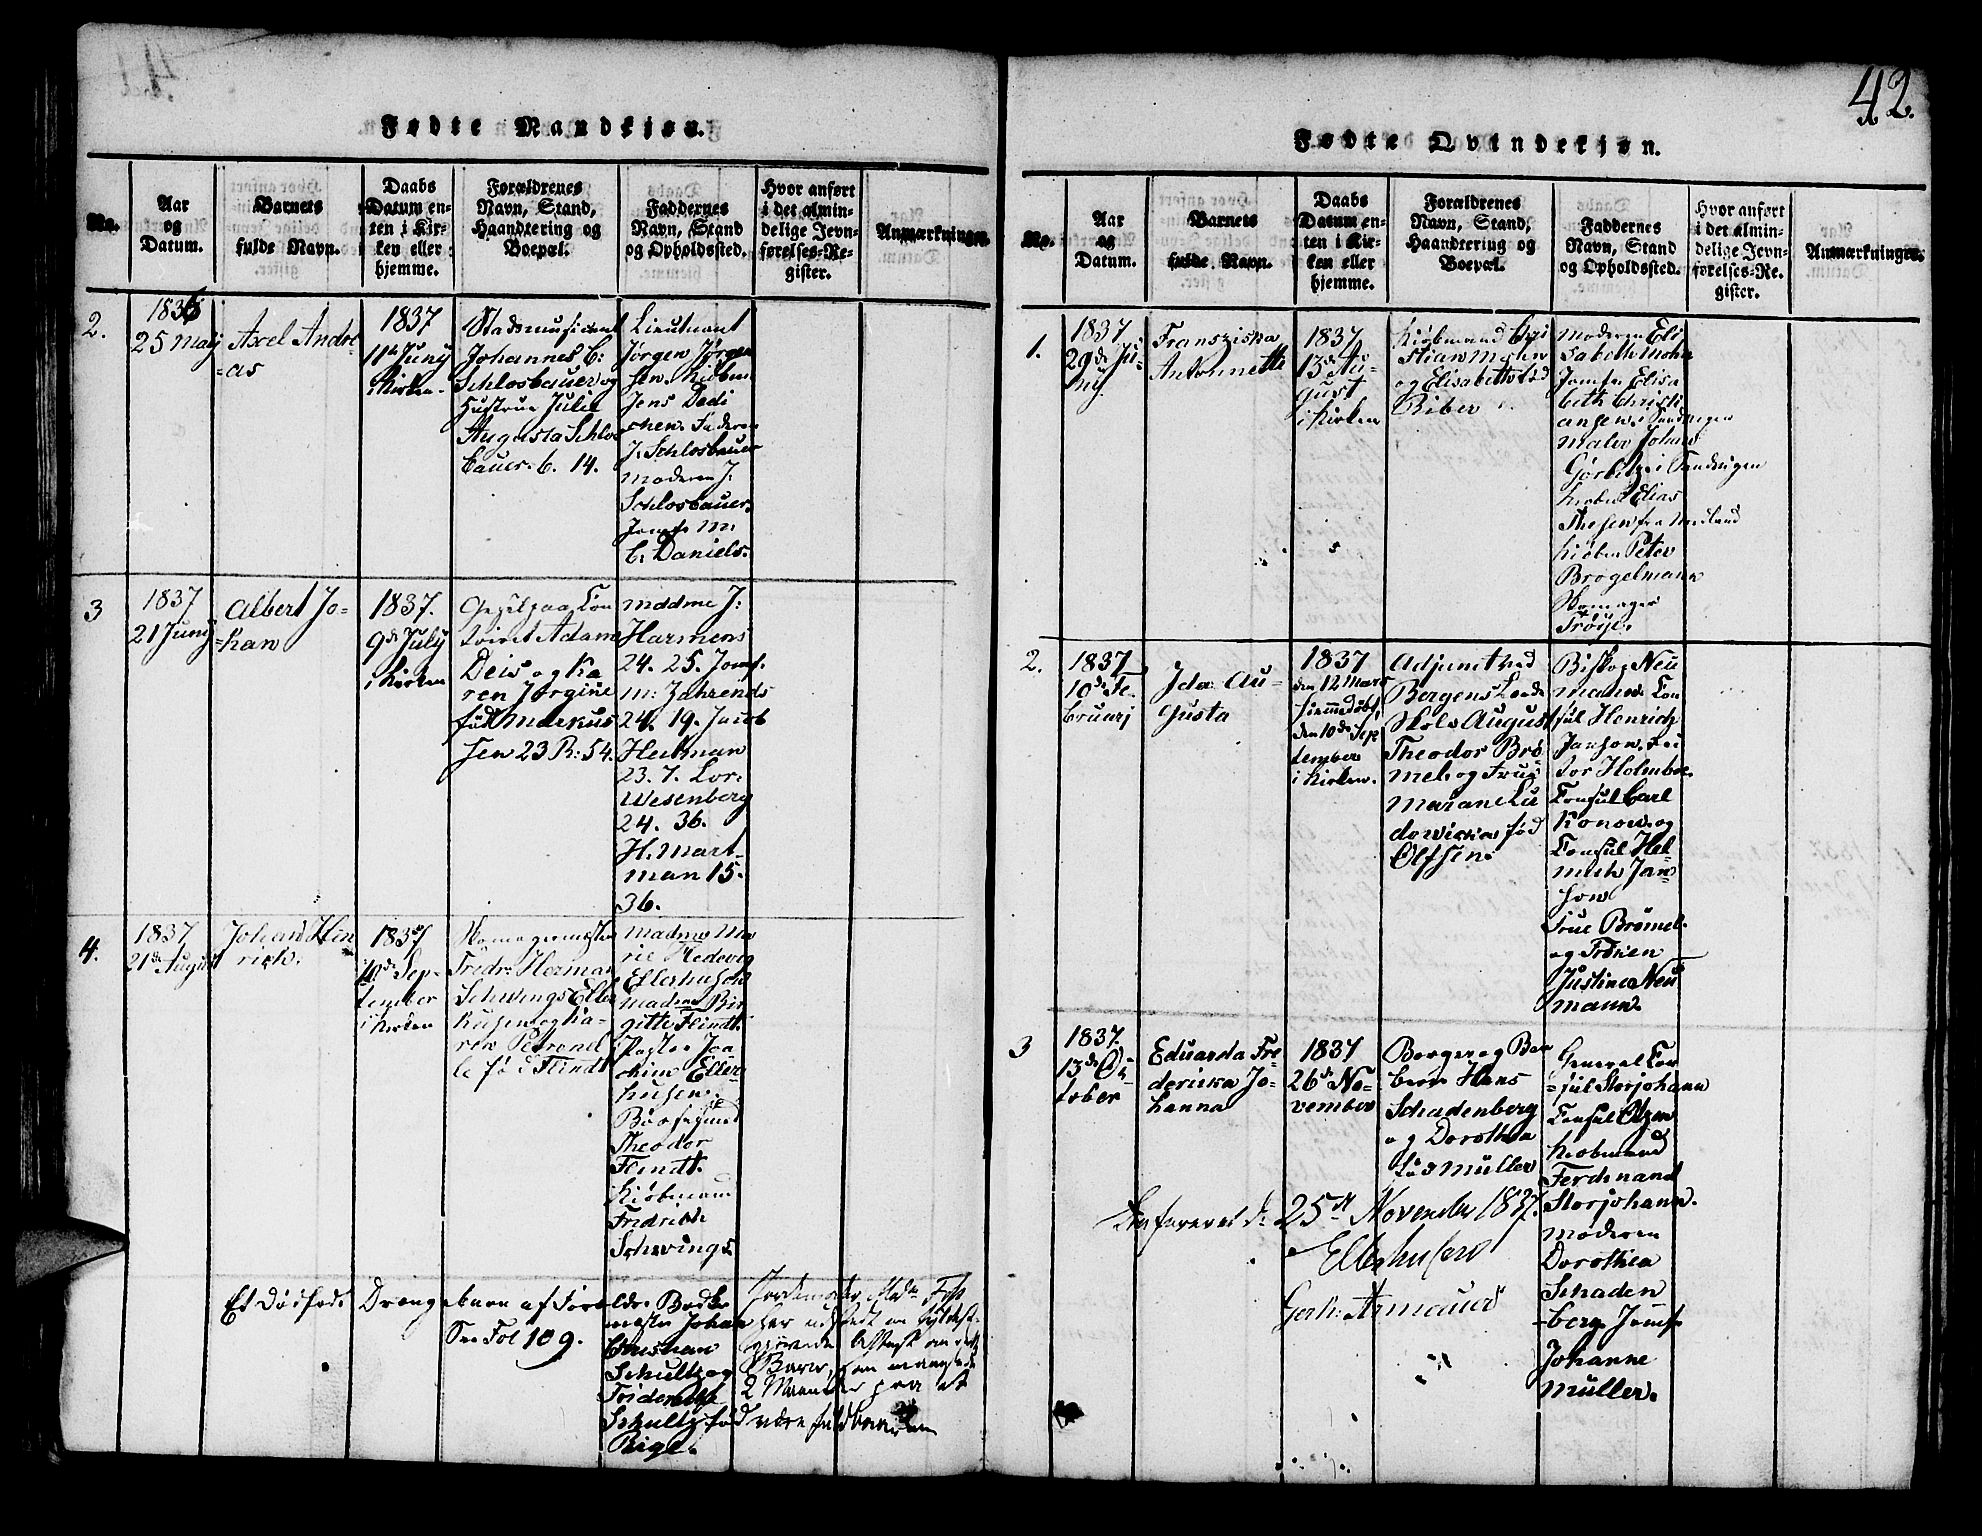 42.
Fødte Mandkjøn.
No.
Aar
og
Datum.
Barnets
fulde Navn.
Daabs
Datum en-
ten i Kir-
ken eller
hjemme.
Forældrenes
Navn, Stand,
Haandtering og
Boepæl.
Faddernes
Navn, Stand
og Opholdssted.
Hvor anført
i det almin-
delige Jevn-
førelses-Re-
gister.
Anmærkninger.
2.
1836
25 May
Axel Andre-
=as
1837
11te Juny
i Kirken.
Stadsmusicant
Johannes C:
Schlosbauer og
Hustrue Julie
Augusta Schlos
bauer. 6. 14.
Lieutnant
Jørgen Jørgen
sen. Kiøbm.
Jens Dedi
chen. Faderen
J. Schlosbauer
Moderen J:
Schlosbauer.
Jomfr. M.
C. Daniels.
3
1837
21 Juny
Albert Jo-
=han
1837.
9de July
i Kirken
Adam
Deis og Ka
ren Jørgine
född Markus
sen 23 R: 54.
Madme J:
Harmens
24. 25. Jomf.
M: Jahrends
24. 19. Jacob
Heitman
23. 7. Lor.
Wesenberg
24. 36.
H. Mart-
man 15.
36.
4.
1837
21de August
Johan Hin
rich.
1837
10de Sep-
tember
i Kirken
Skomagermester
Fredr. Herman
Schwings Eller
husen og Ka-
ren Petronel
le fød Flindt
Madme Ma
rie Hedevig
Ellerhusen
Madme Bir
gitte Flindt.
Joa
chim Eller-
husen.
Theodor
Flindt.
Kiøbmand
Fredrich
Schwings
Et Dødfødt Drengebarn af Foræ
See Fol 109.
ldre Bødker
mester Johan
Christian
Schultz og
Friderikke
Schultz fød
Rige.
Jordemoder Mad:
Barn, han manglede
2 Maaneder paa at
være fuldbaaren
Fødte Qvindekjøn.
No.
Aar
og
Datum.
Barnets
fulde Navn.
Daabs
Datum en-
ten i Kir-
ken eller
hjemme.
Forældrenes
Navn, Stand,
Haandtering og
Boepæl.
Faddernes
Navn, Stand
og Opholdssted.
Hvor anført
i det almin-
delige Jevn-
førelses-Re-
gister.
Anmærkninger.
1.
1837
29de Ju-
ny
Fransziska
Antonnette
1837
13de Au-
gust
i Kirken
Kiøbmand Chri
stian Mohn
og Elisabeth fød
Riber
Moderen Eli
sabeth Mohn
Jomfr. Elisa
beth Christi
ansen i Sandvigen
Maler Johan
Görbitz i Sandvigen
Kiøbm Elias
Thesen fra
Kiøbm Peter
Brøgelmann
Skomager
Trøye.
2.
1837
10de Fe
bruarj
Ida Au-
gusta
1837
den 12 Mars
hiemmedøbt,
den 10de Sep
tember
i Kirken.
Adjunct ved
Bergens Lærde
Skole August
Theodor Brö
mel og Frue
Mariane Lu
dowicka fød
Olfsen.
Biskop Neu
mann. Con
sul Henrich
Janson. Rec
tor Holmboe.
Consul Carl
Konow. og
Consul Hel-
mich Jan-
son
Frue Brømel.
og Frøken
Justine Neu
mann.
3
1837.
13de Oc-
tober
Eduarda Fre
dericka Jo-
hanna
1837
26de No-
vember
Borger og Bar
beer Hans
Schadenberg
og Dorothea
fød Müller
General Con
=sul Storjohann
Consul
Kiøbmand
Ferdinand
Storjohann.
Moderen
Dorothea
Schaden
=berg. Jomfr
Johanne
Müller.
25de November 1837.
Ellerhusen
Gerh: Armauer